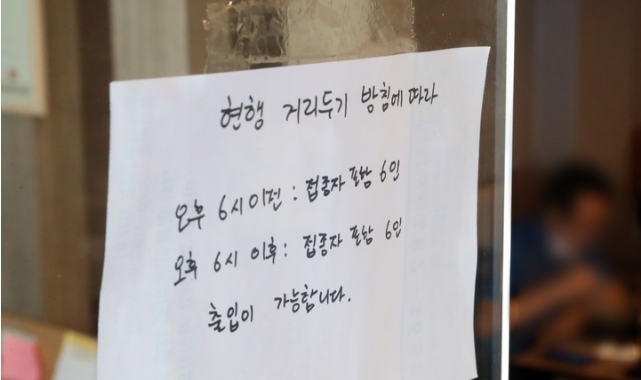 현행 거리두기 방침에 따라
오후 6시 이전 : 접종자 포함 6인
오후 6시 이후 : 접종자 포함 6인
출입이 가능합니다.